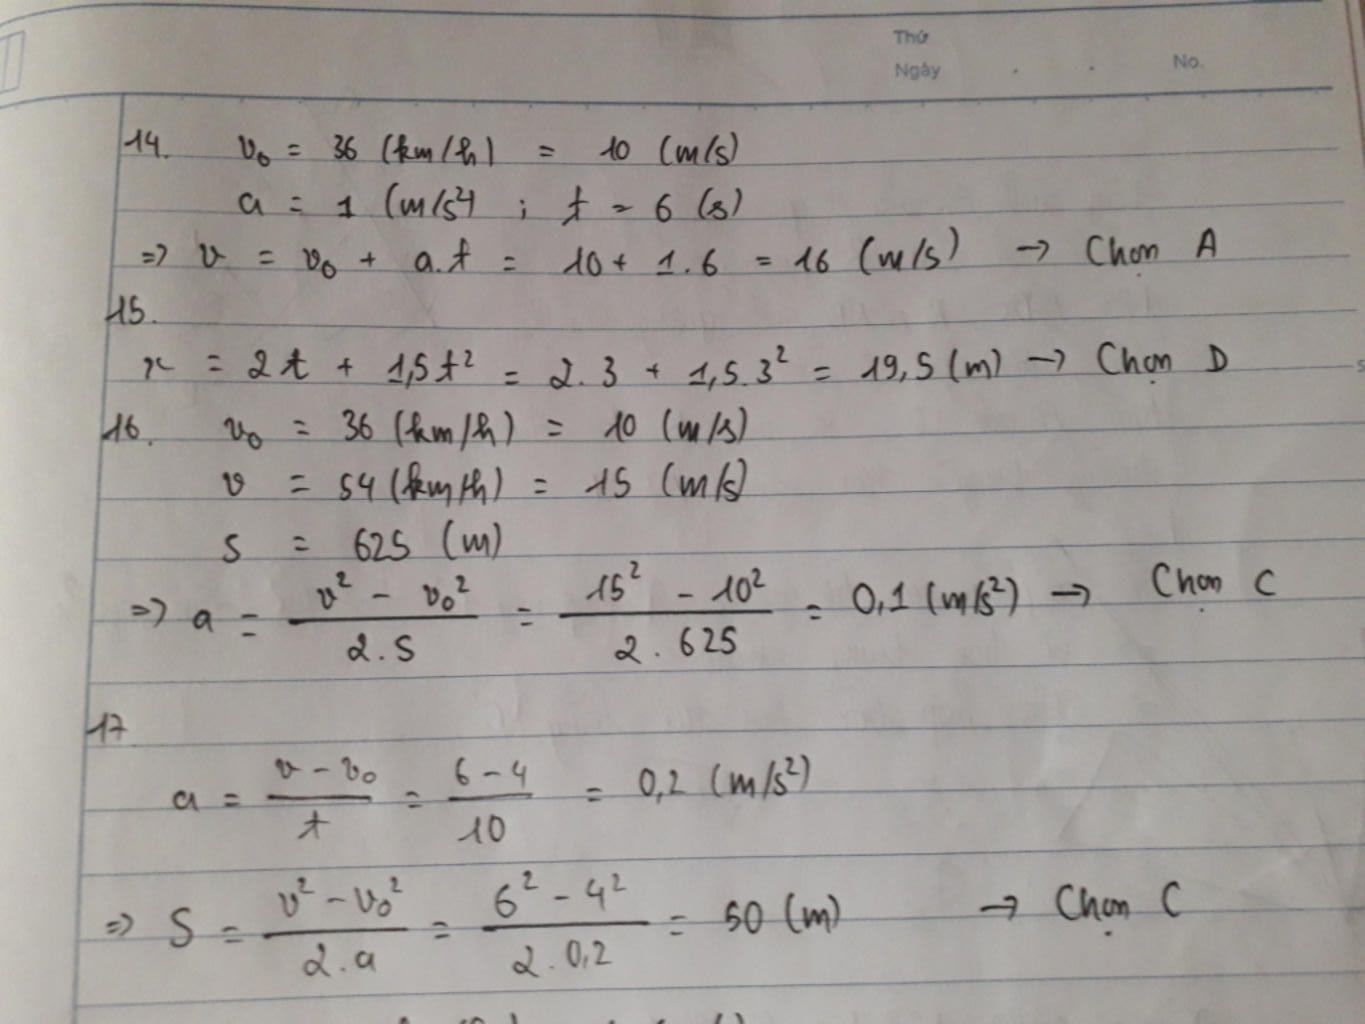 Thứ
Ngày . . No.
14. v₀ = 36 (km/h) = 10 (m/s)
a = 1 (m/s²) ; t = 6 (s)
=> v = v₀ + a.t = 10 + 1.6 = 16 (m/s) → Chọn A
15.
x = 2t + 1,5t² = 2.3 + 1,5.3² = 19,5 (m) → Chọn D
16. v₀ = 36 (km/h) = 10 (m/s)
v = 54 (km/h) = 15 (m/s)
s = 625 (m)
=> a = (v² - v₀²)/(2.S) = (15² - 10²)/(2.625) = 0,1 (m/s²) → Chọn C
17
a = (v - v₀)/t = (6 - 4)/10 = 0,2 (m/s²)
=> S = (v² - v₀²)/(2.a) = (6² - 4²)/(2.0,2) = 50 (m) → Chọn C